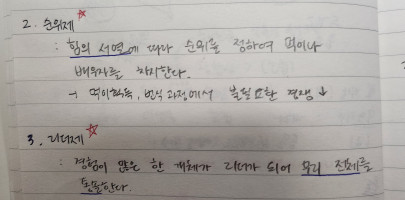 2. 순위제 ☆
: 힘의 서열에 따라 순위를 정하여 먹이나
배우자를 차지한다.
→ 먹이획득, 번식 과정에서 불필요한 경쟁↓
3. 리더제 ☆
: 경험이 많은 한 개체가 리더가 되어 무리 전체를
통솔한다.